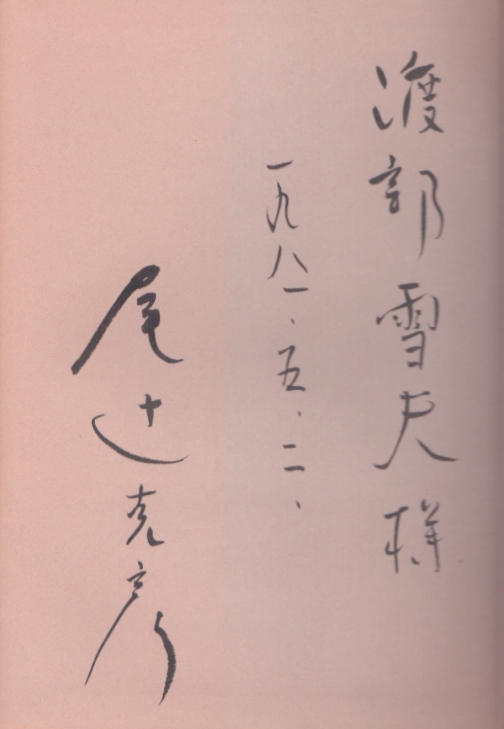 渡部雪夫様
一九八一、五、二、
尾辻克彦